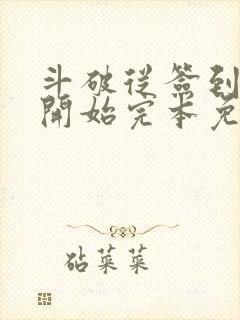 斗破從簽到
開始完本免
砧菜菜